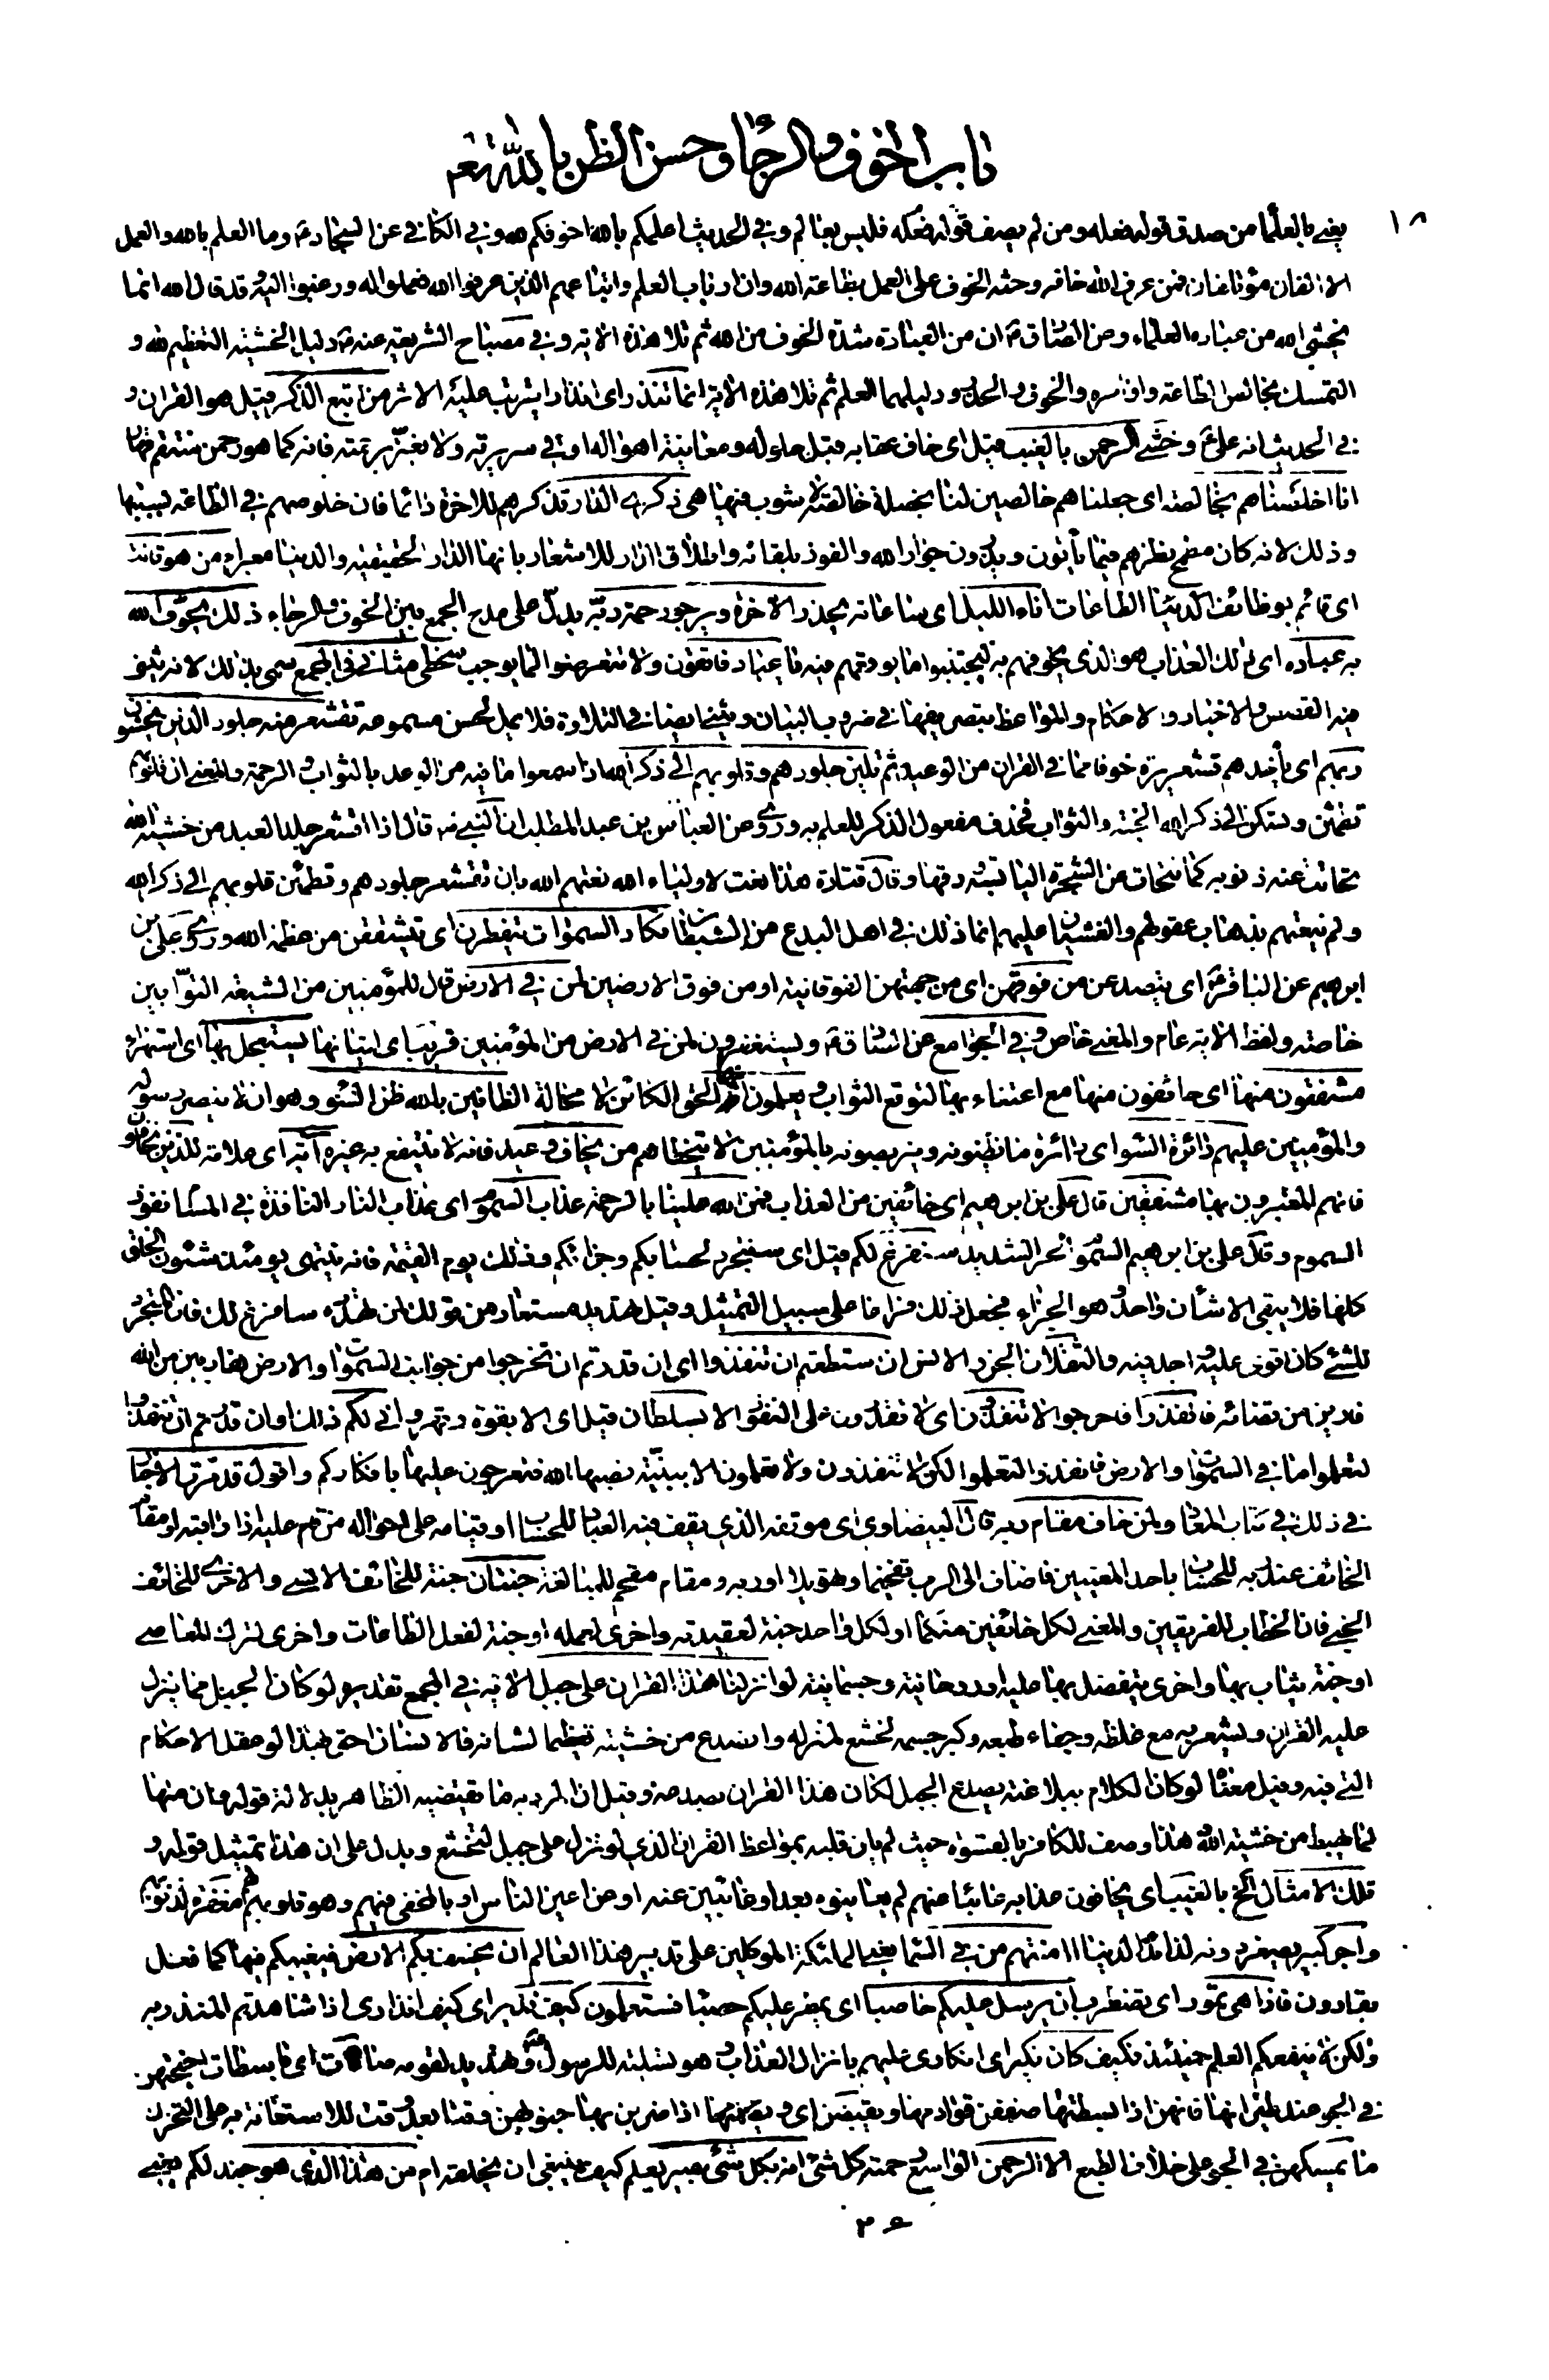 باب الخوف والرجاء وحسن الظن بالله تعم
١٨
يعنى بالعلماء من صدق قوله فعله ومن لم يصدق قوله فعله فليس بعالم وفى الحديث اعلمكم بالله اخوفكم لله وفى الكافى عن السجاد ع وما العلم بالله والعمل
الا الفان مؤتلفان فمن عرف الله خافه وحثه الخوف على العمل بطاعة الله وان ارباب العلم واتباعهم الذين عرفوا الله فعملوا له ورغبوا اليه وقد قال الله انما
يخشى الله من عباده العلماء وعن الصادق ع ان من العبادة شدة الخوف من الله ثم تلا هذه الاية وفى مصباح الشريعة عنه ع دليل الخشية التعظيم لله و
التمسك بخالص الطاعة واوامره والخوف والحذر ودليلهما العلم ثم تلا هذه الاية انما تنذر اى انذارا يترتب عليه الاثر من اتبع الذكر قيل هو القران و
فى الحديث انه على ع وخشى الرحمن بالغيب قيل اى خاف عقابه قبل حلوله ومعاينة اهواله او فى سريرته ولا يغتر برحمته فانه كما هو رحمن منتقم قهار
انا اخلصناهم بخالصة اى جعلناهم خالصين لنا بخصلة خالصة لا شوب فيها هى ذكرى الدار تذكرهم للاخرة دائما فان خلوصهم فى الطاعة بسببها
وذلك لانه كان مطمح نظرهم فيما يأتون ويذرون جوار الله والفوز بلقائه واطلاق الدار للاشعار بانها الدار الحقيقية والدنيا معبر امن هو قانت
اى قائم بوظائف الطاعات اناء الليل اى ساعاته يحذر الاخرة ويرجو رحمة ربه يدل على مدح الجمع بين الخوف والرجاء ذلك يخوف الله
به عباده اى ذلك العذاب هو الذى يخوفهم به ليجتنبوا ما يوقعهم فيه يا عباد فاتقون ولا تتعرضوا لما يوجب سخطى مثانى فى المجمع سمى بذلك لانه يثنى
فيه القصص والاخبار والاحكام والمواعظ بتصريفها فى ضروب البيان ويثنى ايضا فى التلاوة فلا يمل لحسن مسموعه تقشعر منه جلود الذين يخشون
ربهم اى يأخذهم قشعريرة خوفا مما فى القران من الوعيد ثم تلين جلودهم وقلوبهم الى ذكر الله اذا سمعوا ما فيه من الوعد بالثواب والرحمة والمعنى ان قلوبهم
تطمئن وتسكن الى ذكر الله الجنة والثواب فحذف مفعول الذكر للعلم به وروى عن العباس بن عبد المطلب ان النبى ص قال اذا اقشعر جلد العبد من خشية الله
تحاتت عنه ذنوبه كما يتحات عن الشجرة اليابسة ورقها وقال قتادة هذا نعت لاولياء الله نعتهم الله بان تقشعر جلودهم وتطمئن قلوبهم الى ذكر الله
ولم ينعتهم بذهاب عقولهم والغشيان عليهم انما ذلك فى اهل البدع من الشيطان تكاد السموات يتفطرن اى يتشققن من عظمة الله وروى على بن
ابرهيم عن الباقر ع اى يتصدعن من فوقهن اى من جهتهن الفوقانية او من فوق الارضين لمن فى الارض قال للمؤمنين من الشيعة التوابين
خاصة ولفظ الاية عام والمعنى خاص وفى الجوامع عن الصادق ع ويستغفرون لمن فى الارض من المؤمنين قريب اى اتيانها يستعجل بها اى استهزاء
مشفقون منها اى خائفون منها مع اعتناء بها لتوقع الثواب ويعلمون انها الحق الكائن لا محالة الظانين بالله ظن السوء وهو ان لا ينصر رسوله
والمؤمنين عليهم دائرة السوء اى دائرة ما يظنونه ويتربصونه بالمؤمنين لا يتخطاهم من يخاف وعيد فانه لا ينتفع به غيره آية اى علامة للذين يخافون
فانهم المعتبرون بها مشفقين قال على بن ابرهيم اى خائفين من العذاب فمن الله علينا بالرحمة عذاب السموم اى عذاب النار النافذة فى المسام نفوذ
السموم وقال على بن ابرهيم السموم الحر الشديد سنفرغ لكم قيل اى سنتجرد لحسابكم وجزائكم وذلك يوم القيمة فانه ينتهى يومئذ شئون الخلق
كلها فلا يبقى الا شأن واحد وهو الجزاء فجعل ذلك فراغا على سبيل التمثيل وقيل تهديد مستعار من قولك لمن تهدده سافرغ لك فان المتجرد
للشئ كان اقوى عليه واجد فيه والثقلان الجن والانس ان استطعتم ان تنفذوا اى ان قدرتم ان تخرجوا من جوانب السموات والارض هاربين من الله
فارين من قضائه فانفذوا فاخرجوا لا تنفذون اى لا تقدرون على النفوذ الا بسلطان قيل اى الا بقوة وقهر وانى لكم ذلك او ان قدرتم ان تنفذوا
لتعلموا ما فى السموات والارض فانفذوا لتعلموا لكن لا تنفذون ولا تعلمون الا ببينة نصبها الله فتعرجون عليها بافكاركم واقول قد مرت الاخبار
فى ذلك فى كتاب المعاد ولمن خاف مقام ربه قال البيضاوى اى موقفه الذى يقف فيه العباد للحساب او قيامه على احواله من قام عليه اذا راقبه او مقام
الخائف عند ربه للحساب باحد المعنيين فاضاف الى الرب تفخيما وتهويلا او ربه ومقام مقحم للمبالغة جنتان جنة للخائف الانسى والاخرى للخائف
الجنى فان الخطاب للفريقين والمعنى لكل خائفين منكما او لكل واحد جنة لعقيدته واخرى لعمله او جنة لفعل الطاعات واخرى لترك المعاصى
او جنة يثاب بها واخرى يتفضل بها عليه او روحانية وجسمانية لو انزلنا هذا القران على جبل الاية فى المجمع تقديره لو كان الجبل مما ينزل
عليه القران ويشعر به مع غلظه وجفاء طبعه وكبر جسمه لخشع لمنزله وانصدع من خشيته تعظيما لشانه فالانسان احق بهذا لو عقل الاحكام
التى فيه وقيل معناه لو كان الكلام ببلاغته يصدع الجبل لكان هذا القران يصدعه وقيل ان المراد به ما يقتضيه الظاهر بدلالة قوله وان منها
لما يهبط من خشية الله وهذا وصف للكافر بالقسوة حيث لم يلن قلبه بمواعظ القران الذى لو نزل على جبل لتخشع ويدل على ان هذا تمثيل قوله و
تلك الامثال الخ بالغيب اى يخافون عذابه غائبا عنهم لم يعاينوه بعد او غائبين عنه او عن اعين الناس او بالمخفى منهم وهو قلوبهم لهم مغفرة لذنوبهم
واجر كبير يصغر دونه لذائذ الدنيا ءامنتم من فى السماء يعنى الملائكة الموكلين على تدبير هذا العالم ان يخسف بكم الارض فيغيبكم فيها كما فعل
بقارون فاذا هى تمور اى تضطرب ان يرسل عليكم حاصبا اى يمطر عليكم حصباء فستعلمون كيف نذير اى كيف انذارى اذا شاهدتم المنذر به
ولكن لا ينفعكم العلم حينئذ فكيف كان نكير اى انكارى عليهم بانزال العذاب وهو تسلية للرسول ص وتهديد لقومه صافات اى باسطات اجنحتهن
فى الجو عند طيرانها فانهن اذا بسطنها صففن قوادمها ويقبضن اى ويضممنها اذا ضربن بها جنوبهن وقتا بعد وقت للاستعانة به على التحرك
ما يمسكهن فى الجو على خلاف الطبع الا الرحمن الواسع رحمته كل شئ انه بكل شئ بصير يعلم كيف ينبغى ان يخلقه ام من هذا الذى هو جند لكم يعنى